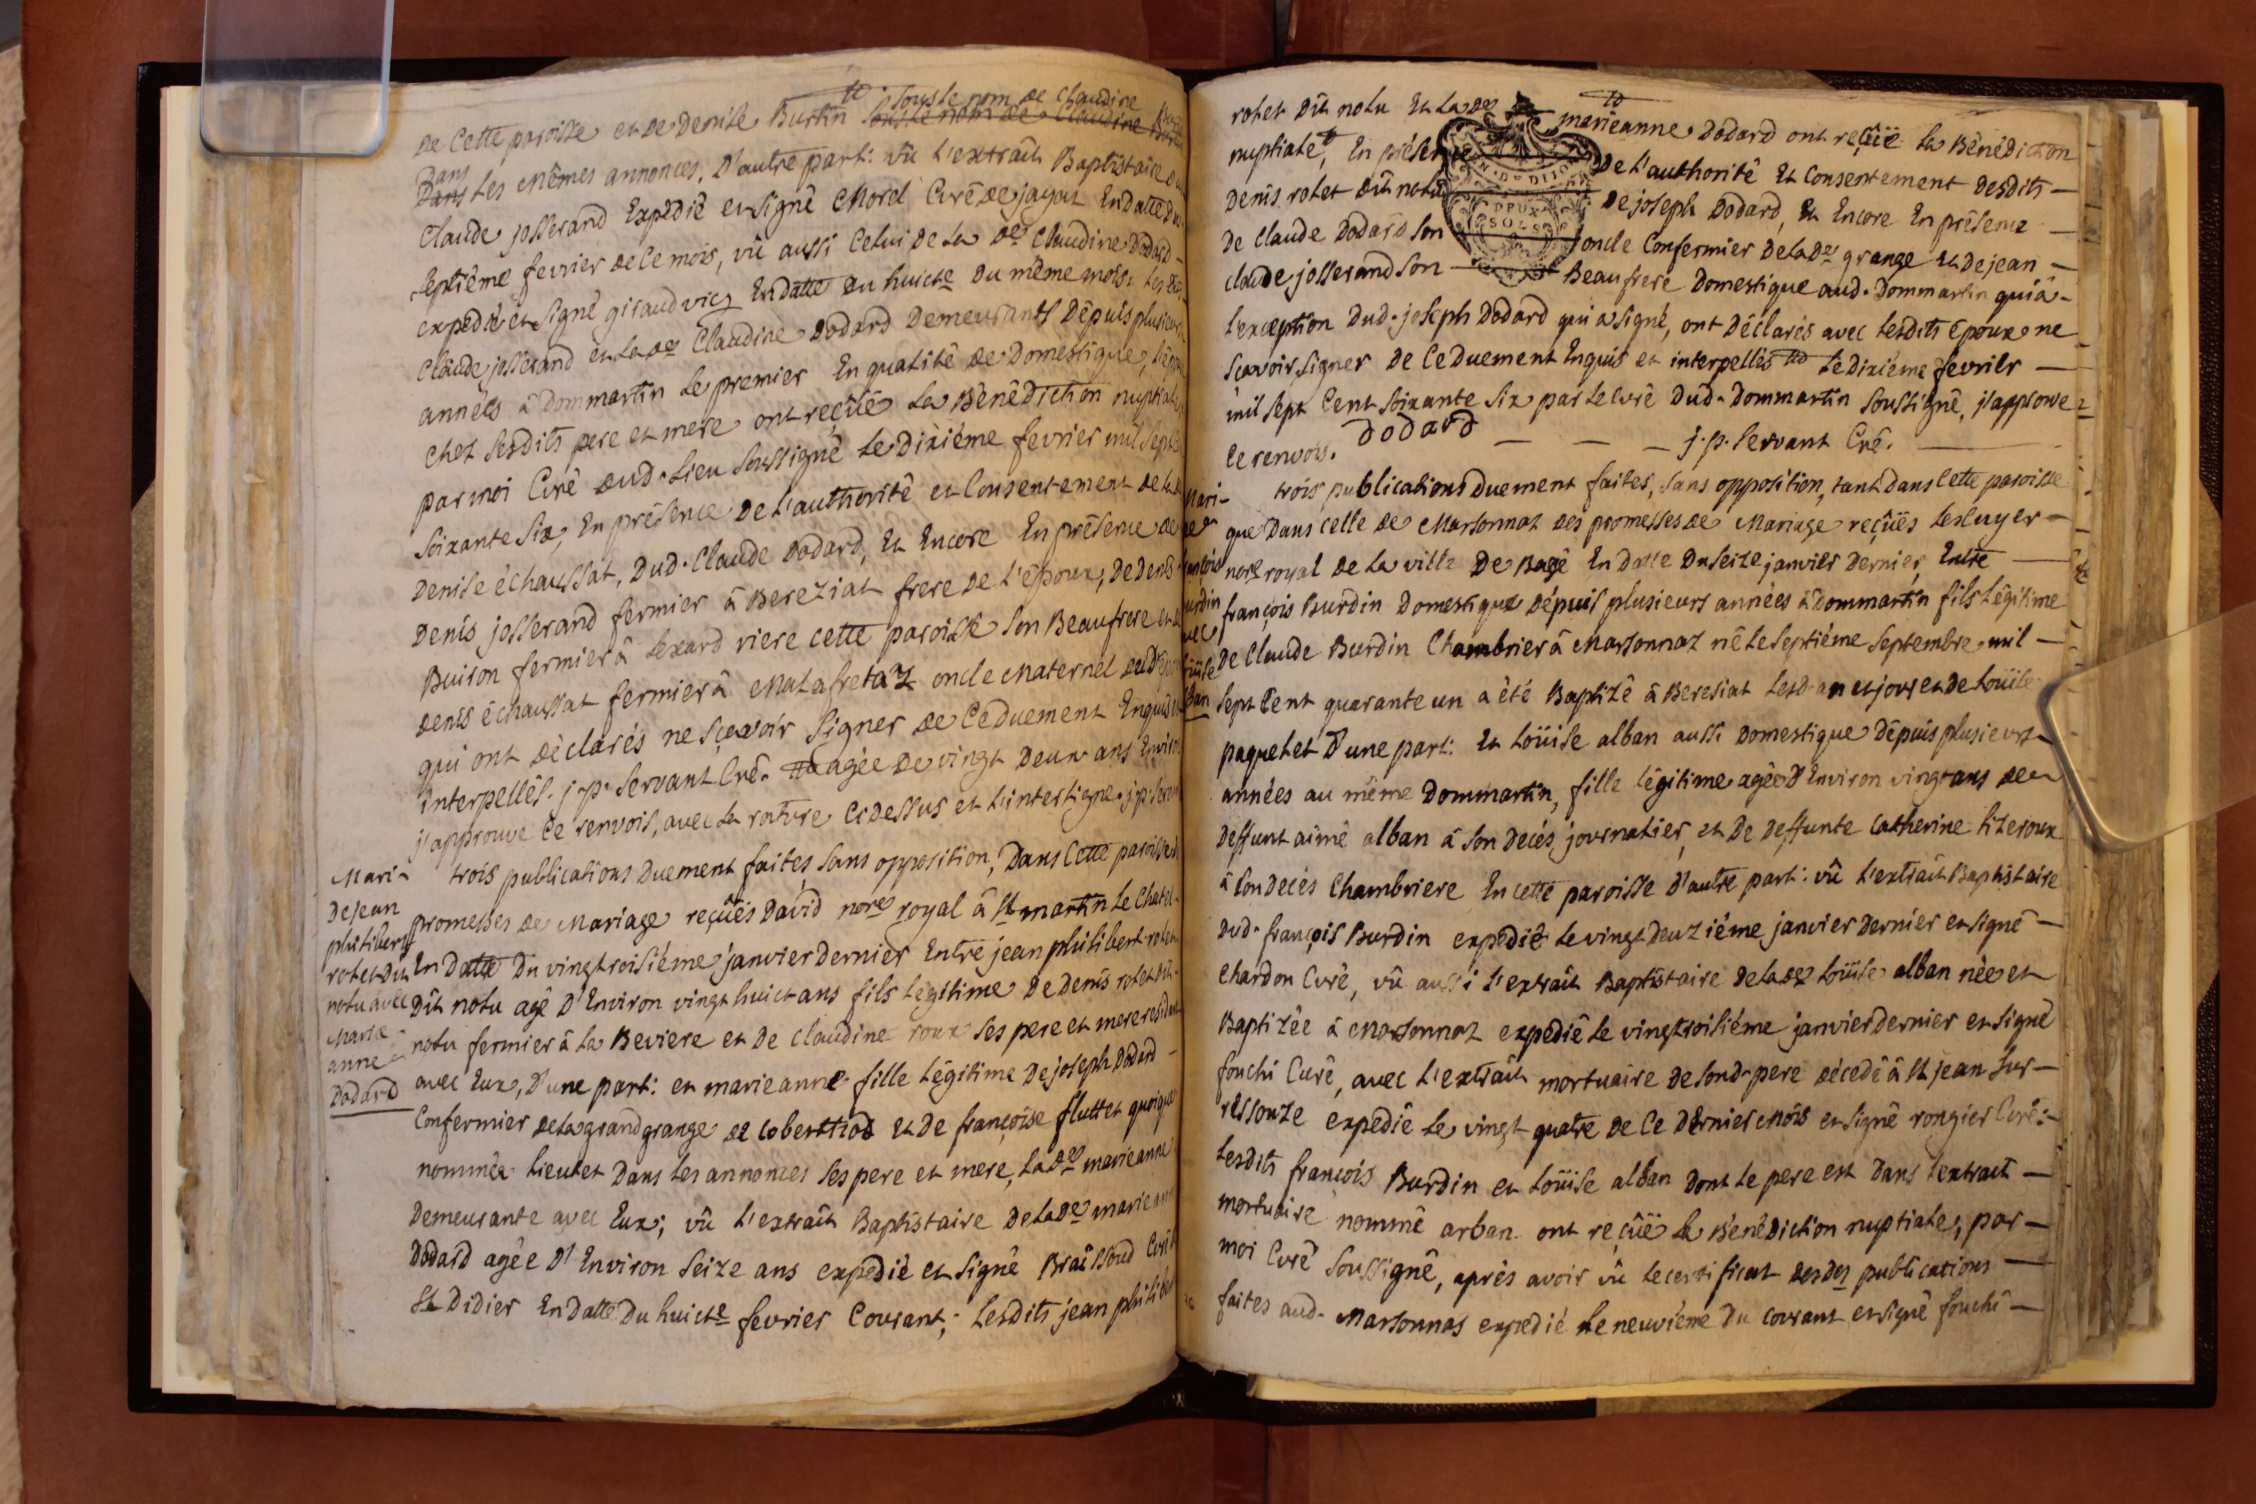 sous le nom de Claudine
de Cette paroisse et de Denise Burtin sous le nom de Claudine
Dans
Dans Les mêmes annonces, D'autre part: vû L'extrait Baptistaire
Claude josserand Expedié et signé Morel Curé de jayat En datte du
septiéme fevrier de Ce mois, vû aussi Celui de La de Claudine Dodard
expedié et signé giraud vic: En datte du huicte du même mois: Les
Claude josserand et La de Claudine Dodard Demeurants Dépuis plusieurs
années â Dommartin Le premier En qualité de Domestique,
chez sesdits pere et mere ont reçûë La Bénédiction nuptiale
par moi Curé dud. Lieu soussigné Le dixiéme fevrier mil sept
soixante six, En présence De L'authorité et Consentement de
Denise échaussat, Dud. Claude Dodard, Et Encore En présence de
Denis josserand fermier â Bereziat frere de L'époux, De denis
Buiron fermier â Lexard riere cette paroisse son Beaufrere et
denis échaussat fermier â Malafretaz oncle Maternel
qui ont déclarés ne sçavoir signer de Ce duement Enquis
interpellés. j.p. servant Cré. agée de vingt Deux ans Environ
j'approuve Ce renvois, avec La rature Cidessus et L'interligne. j.p. servant
Mari-
De jean
philibert
rotet dit
notu avec
Marie
anne
Dodard
trois publications Duement faites sans opposition, Dans Cette paroisse
promesses de Mariage reçûës David nore royal â st martin Le Chatel
En Datte Du vingtroisiéme janvier dernier Entre jean philibert rotet
Dit notu agé D'Environ vingt huict ans fils Légitime De Denis rotet dit
notu fermier â La Beviere et de Claudine roux ses pere et mere residant
avec Eux, D'une part: et marieanne fille Légitime De joseph Dodard
Confermier de La grand grange de et De françoise fluttet quoique
nommée Lieutet Dans Les annonces ses pere et mere, La de marieanne
Demeurante avec Eux; vû L'extrait Baptistaire De La de marieanne
Dodard agée D'Environ seize ans expedié et signé Curé
st Didier En datte Du huicte fevrier Courant; Lesdits jean philibert
rotet Dit notu Et La de marieanne Dodard ont reçûë La Bénédiction
nuptiale, En présence De L'authorité Et Consentement desdits
Denis rotet dit notu De joseph Dodard, Et Encore En présence
De Claude Dodard son oncle Confermier De La de grange et de jean
claude josserand son Beaufrere Domestique aud. Dommartin qui â
L'exception Dud. joseph Dodard qui a signé, ont Déclarés avec Lesdits Epoux ne
sçavoir signer de Ce Duement Enquis et interpellés Le dixiéme fevrier
mil sept Cent soixante six par Le Curé Dud. Dommartin soussigné, j'approuve
Ce renvois. Dodard j.p. servant Cré.
DEUX
SOLS
Mari-
trois publications Duement faites, sans opposition, tant Dans Cette paroisse
que Dans celle de Marsonnaz des promesses de Mariage reçûës Lescuyer
nore royal de La ville De Bagé En Datte Du seize janvier Dernier, Entre
françois Burdin Domestique Dépuis plusieurs années â Dommartin fils Légitime
De Claude Burdin Chambrier â Marsonnaz né Le septiéme septembre mil
sept Cent quarante un a été Baptizé â Beresiat Lesd. an et jour et de Loüise
paquelet D'une part: Et Loüise alban aussi Domestique Dépuis plusieurs
années au même Dommartin, fille Légitime agée D'Environ vingt ans de
Deffunt aimé alban â son Decés, journalier, et De Deffunte Catherine
â son Decés Chambriere En cette paroisse D'autre part: vû L'extrait Baptistaire
Dud. françois Burdin expedié Le vingt Deuziéme janvier Dernier et signé
chardon Curé, vû aussi L'extrait Baptistaire de La de Loüise alban née et
Baptizée â Marsonnaz expedié Le vingtroisiéme janvier dernier et signé
fouchi Curé, avec L'extrait mortuaire de sond. pere décedé â st jean sur
ressouze expedié Le vingt quatre de Ce Dernier Mois et signé rongier Curé:
Lesdits françois Burdin et Loüise alban Dont Le pere est Dans L'extrait
mortuaire nommé arban ont reçûë La Bénédiction nuptiale, par
moi Curé soussigné, aprés avoir vû Le certificat desdes publications
faites aud. Marsonnas expedié Le neuviéme Du courant et signé fouchi